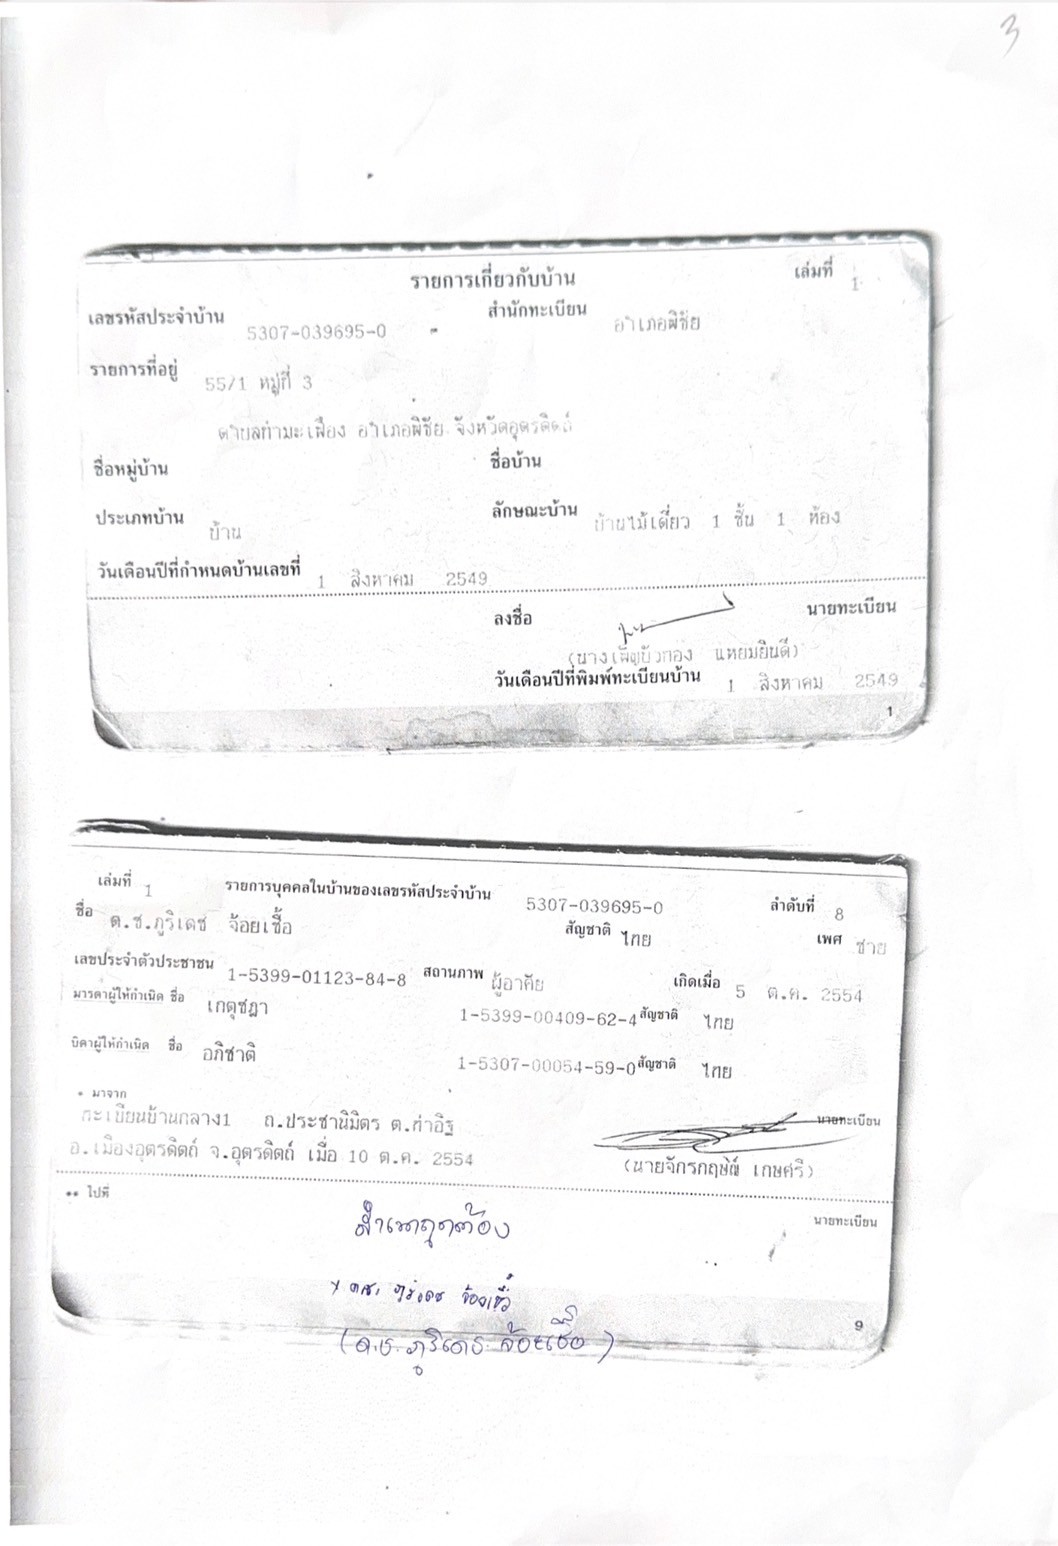 3
รายการเกี่ยวกับบ้าน เล่มที่ 1
เลขรหัสประจำบ้าน 5307-039695-0 สำนักทะเบียน อำเภอพิชัย
รายการที่อยู่ 55/1 หมู่ที่ 3
ตำบลท่ามะเฟือง อำเภอพิชัย จังหวัดอุตรดิตถ์
ชื่อหมู่บ้าน ชื่อบ้าน
ประเภทบ้าน บ้าน ลักษณะบ้าน บ้านไม้เดี่ยว 1 ชั้น 1 ห้อง
วันเดือนปีที่กำหนดบ้านเลขที่ 1 สิงหาคม 2549
ลงชื่อ นายทะเบียน
(นางเพ็ญบัวทอง แหยมยินดี)
วันเดือนปีที่พิมพ์ทะเบียนบ้าน 1 สิงหาคม 2549
1
เล่มที่ 1 รายการบุคคลในบ้านของเลขรหัสประจำบ้าน 5307-039695-0 ลำดับที่ 8
ชื่อ ด.ช.ภูริเดช จ้อยเชื้อ สัญชาติ ไทย เพศ ชาย
เลขประจำตัวประชาชน 1-5399-01123-84-8 สถานภาพ ผู้อาศัย เกิดเมื่อ 5 ต.ค. 2554
มารดาผู้ให้กำเนิด ชื่อ เกตุชฎา 1-5399-00409-62-4 สัญชาติ ไทย
บิดาผู้ให้กำเนิด ชื่อ อภิชาติ 1-5307-00054-59-0 สัญชาติ ไทย
* มาจาก
ทะเบียนบ้านกลาง1 ถ.ประชานิมิตร ต.ท่าอิฐ นายทะเบียน
อ.เมืองอุตรดิตถ์ จ.อุตรดิตถ์ เมื่อ 10 ต.ค. 2554 (นายจักรกฤษณ์ เกษศรี)
** ไปที่ นายทะเบียน
สำเนาถูกต้อง
ด.ช. ภูริเดช จ้อยเชื้อ
(ด.ช.ภูริเดช จ้อยเชื้อ)
9